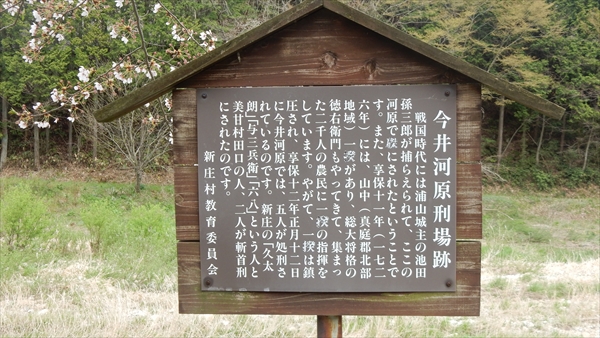 今井河原刑場跡
戦国時代には浦山城主の池田
孫三郎が捕らえられて、ここの
河原で磔にされたということで
す。また、享保十一年(一七二
六年)には、山中(真庭郡北部
地域)一揆があり、総大将格の
徳右衛門もやってきて、集まっ
た二千人の農民に一揆の指揮を
しています。やがて、一揆は鎮
圧され、享保十二年正月十二日
に今井河原では、五人が処刑さ
れているのです。新庄の「久太
朗」「与三兵衛」「六八」という人と
美甘村田口の人、二人が斬首刑
にされたのです。
新庄村教育委員会